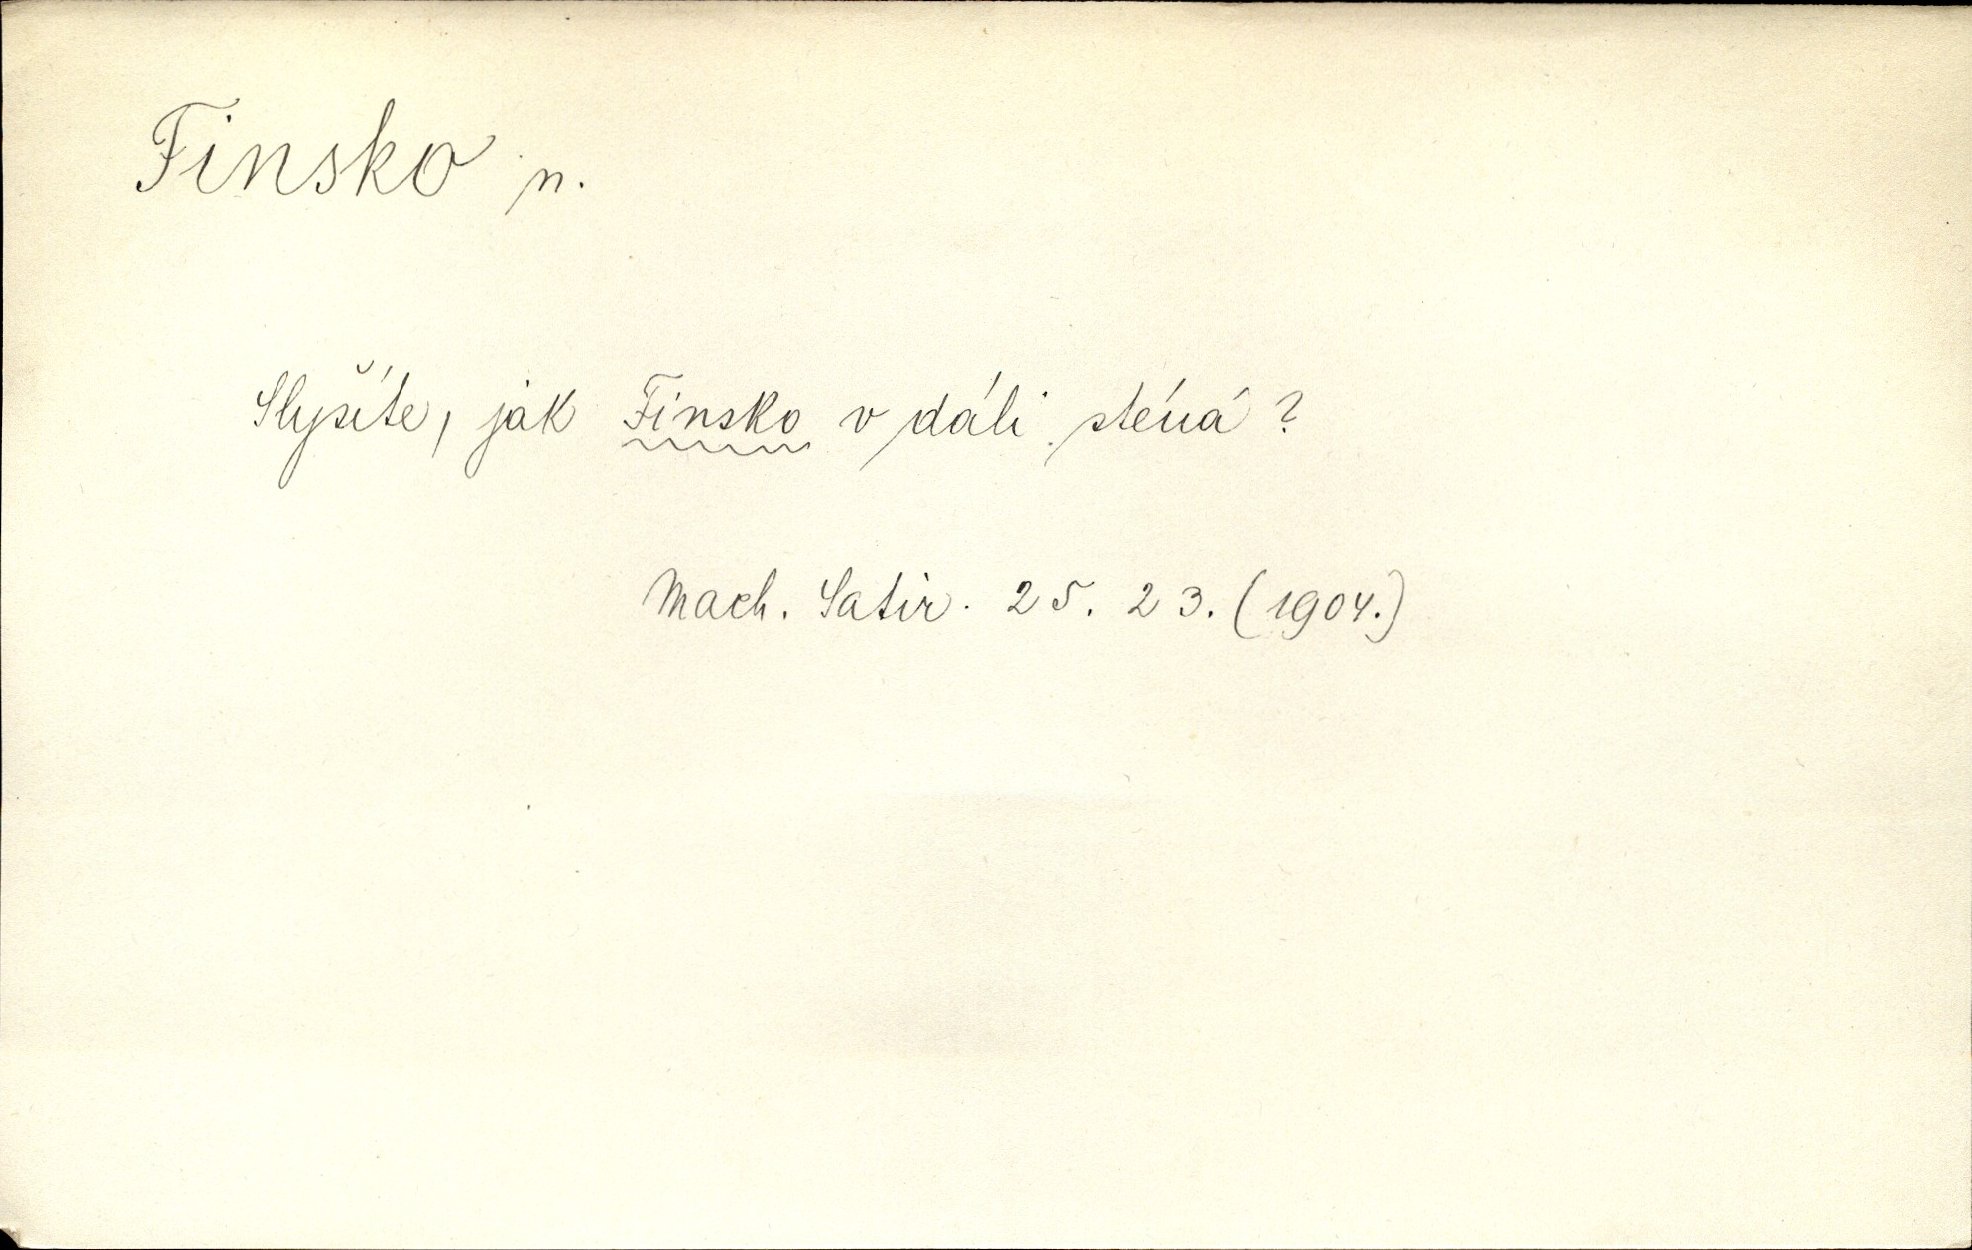 Finsko n.
Slyšíte, jak Finsko v dáli sténá?
Mach. Satir. 25. 23. (1904.)